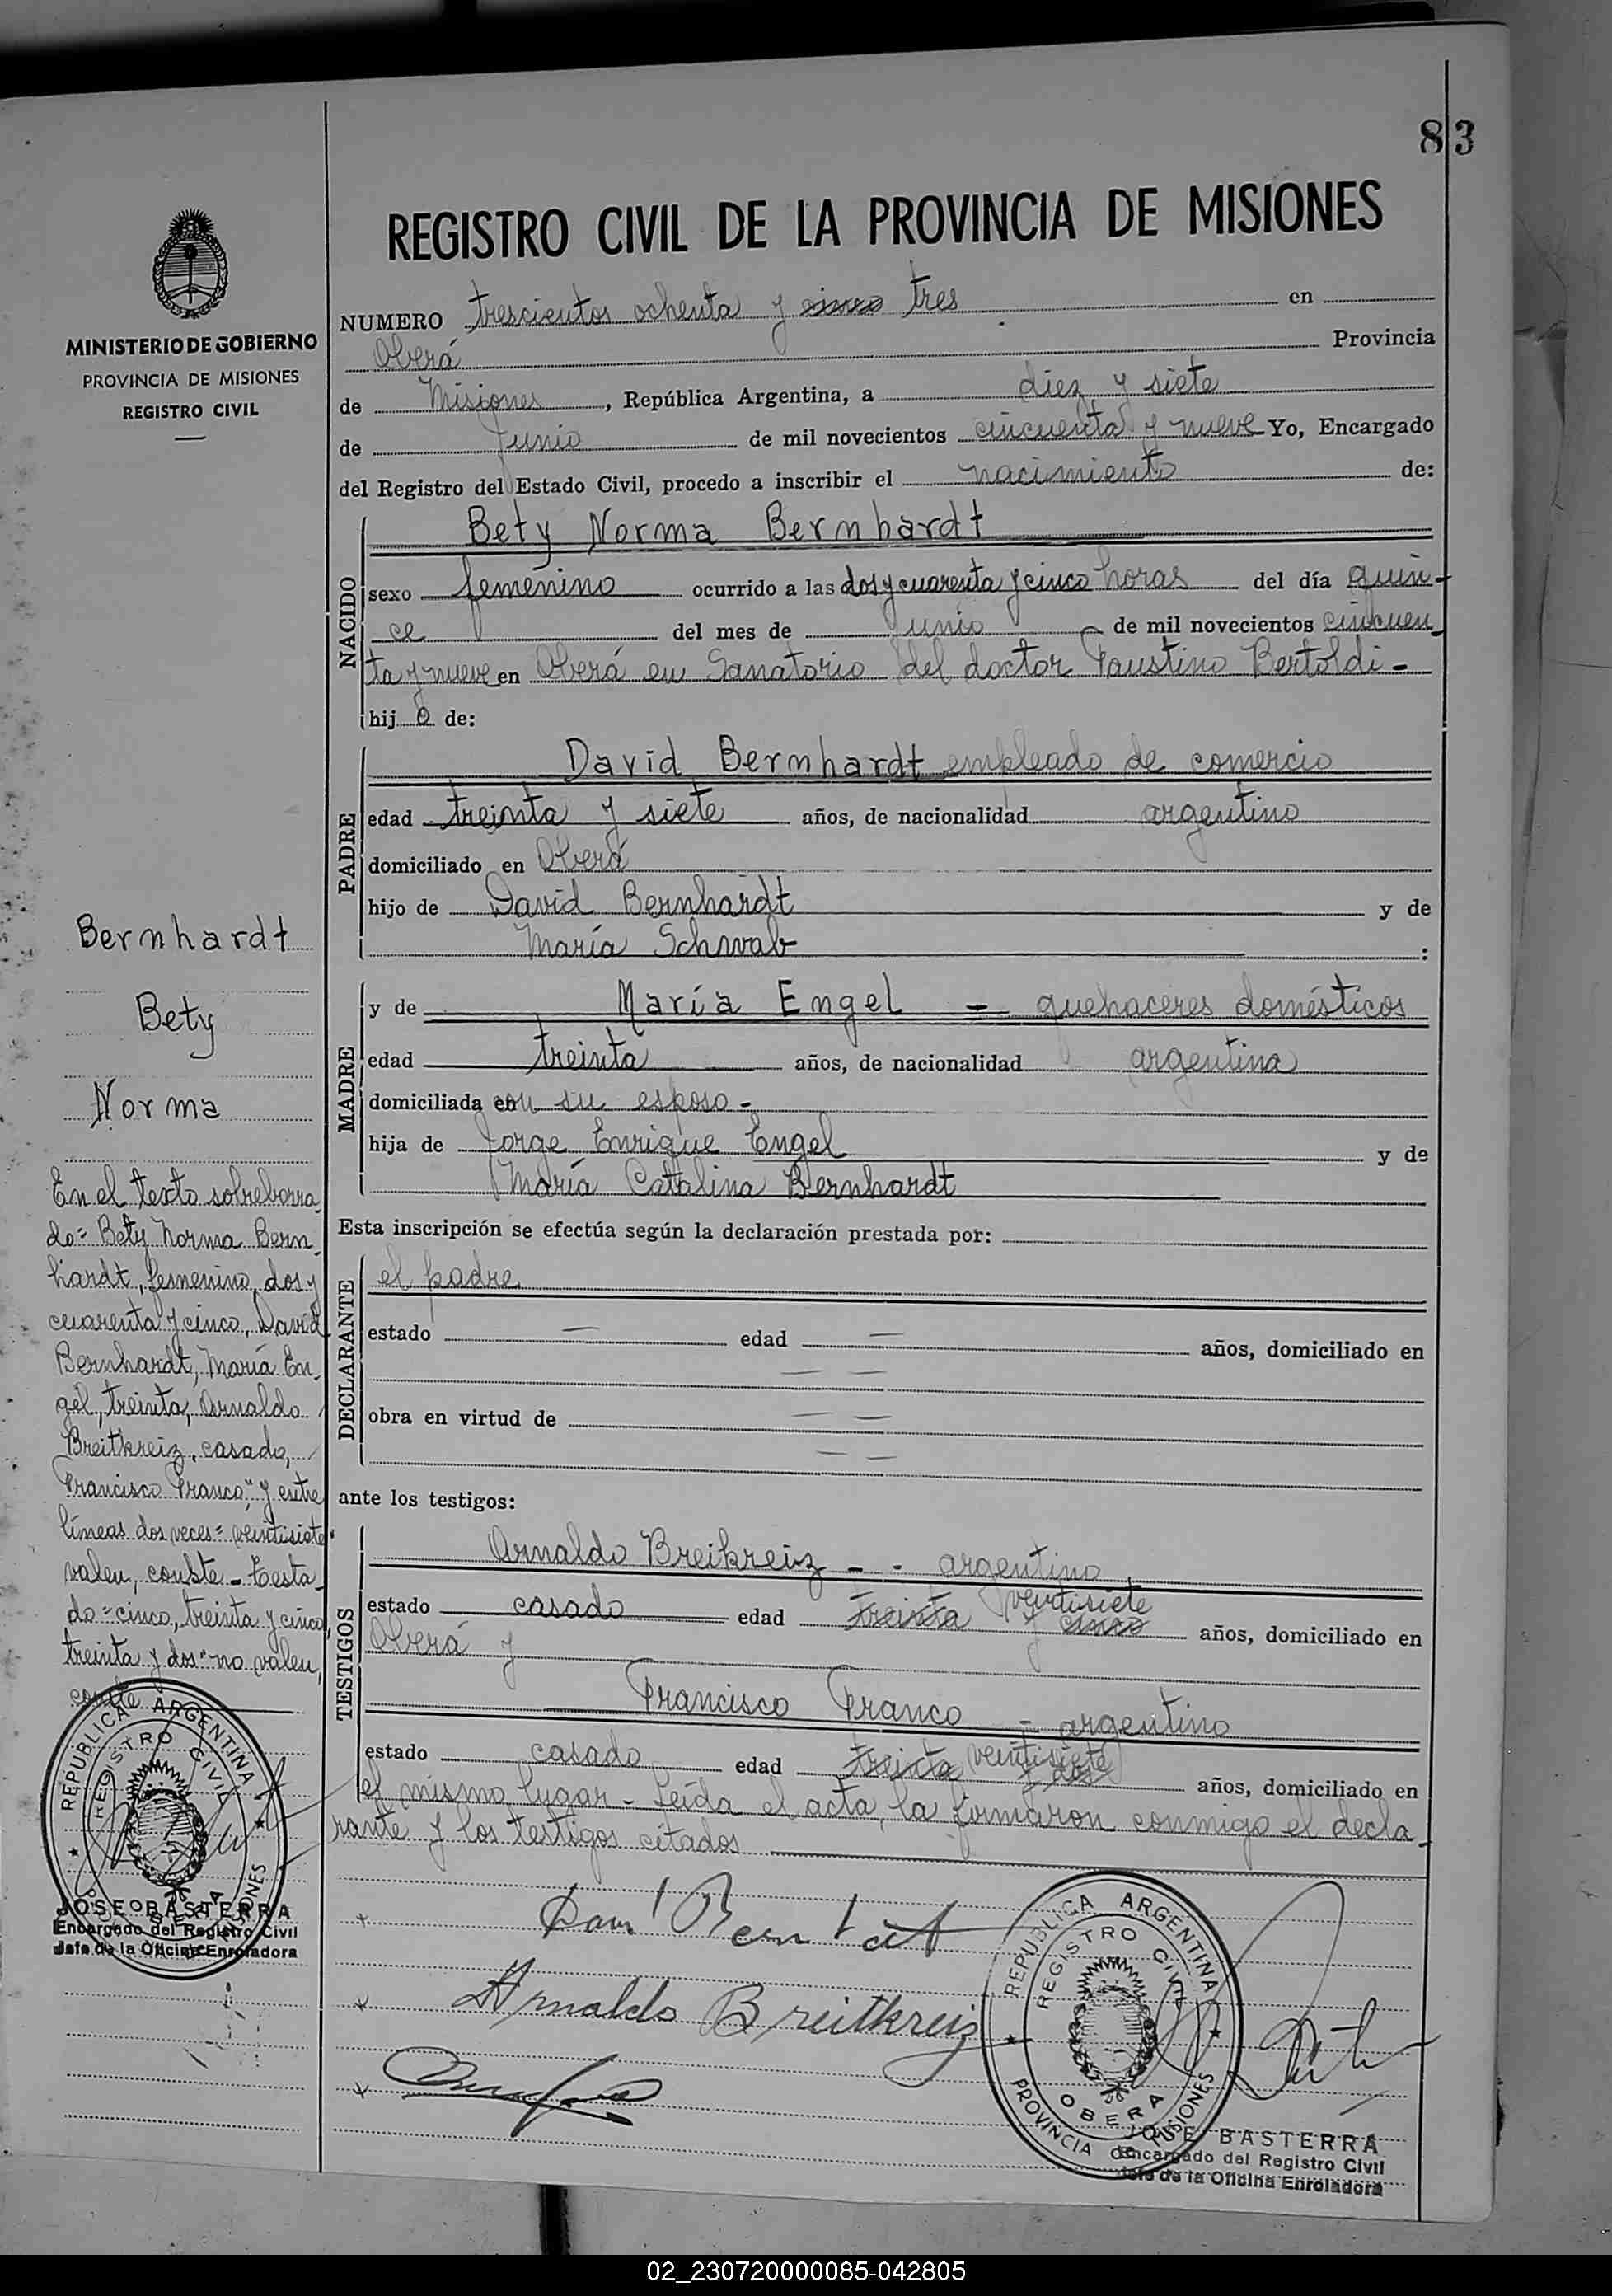 83
REGISTRO CIVIL DE LA PROVINCIA DE MISIONES
MINISTERIO DE GOBIERNO
PROVINCIA DE MISIONES
REGISTRO CIVIL
NUMERO trescientos ochenta y cinco tres en
Oberá Provincia
de Misiones, República Argentina, a diez y siete
de junio de mil novecientos cincuenta y nueve Yo, Encargado
del Registro del Estado Civil, procedo a inscribir el nacimiento de:
NACIDO
Bety Norma Bernhardt
sexo femenino ocurrido a las dos y cuarenta y cinco horas del día quin-
ce del mes de junio de mil novecientos cincuen-
ta y nueve en Oberá en Sanatorio del doctor Faustino Bertoldi -
hij a de:
PADRE
David Bernhardt empleado de comercio
edad treinta y siete años, de nacionalidad argentino
domiciliado en Oberá
hijo de David Bernhardt y de
María Schwab :
MADRE
y de María Engel - quehaceres domésticos
edad treinta años, de nacionalidad argentina
domiciliada en con su esposo -
hija de Jorge Enrique Engel y de
María Catalina Bernhardt
Esta inscripción se efectúa según la declaración prestada por:
DECLARANTE
el padre
estado — edad — años, domiciliado en
— —
obra en virtud de — —
— —
ante los testigos:
TESTIGOS
Arnaldo Breikreiz - - argentino
estado casado edad treinta y cinco ventisiete años, domiciliado en
Oberá y
Francisco Franco - argentino
estado casado edad treinta y dos ventisiete años, domiciliado en
el mismo lugar - Leída el acta, la firmaron conmigo el decla-
rante y los testigos citados
Bernhardt
Bety
Norma
En el texto sobreborra-
do = Bety Norma Bern-
hardt, femenino, dos y
cuarenta y cinco, David
Bernhardt, María En-
gel, treinta, Arnaldo
Breitkreiz, casado,
Francisco Franco" y entre
líneas dos veces = veintisiete"
valen, conste - Testa-
do = cinco, treinta y cinco,
treinta y dos" no valen,
conste
REPUBLICA ARGENTINA
REGISTRO CIVIL
OBERA
PROVINCIA DE MISIONES
JOSE BASTERRA
Encargado del Registro Civil
Jefe de la Oficina Enroladora
Arnaldo Breitkreiz
REPUBLICA ARGENTINA
REGISTRO CIVIL
OBERA
PROVINCIA DE MISIONES
JOSE BASTERRA
Encargado del Registro Civil
Jefe de la Oficina Enroladora
02_230720000085-042805